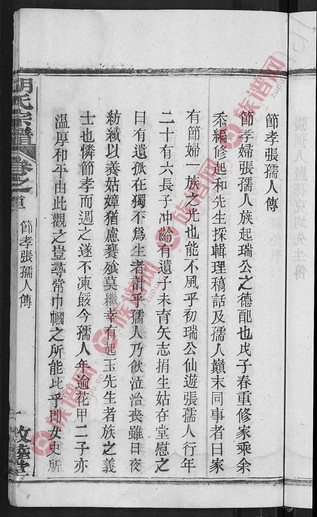 節孝張孺人傳
節孝婦張孺人族起瑞公之德配也戊子春重修家乘余
忝編修起和先生採輯理稿話及孺人巔末同事者曰家
有節婦一族之光也能不風乎初瑞公仙遊張孺人行年
二十有六長子冲齡有遺子未育矢志捐生姑在堂慰之
曰有遺孤在獨不為生者計乎孺人乃飲泣治喪雖日夜
紡績以養姑嫜猶慮饔飧莫繼幸有起玉先生者族之義
士也憐節孝而週之遂不凍餒今孺人年逾花甲二子亦
溫厚和平由此觀之豈尋常巾幗之所能比乎閨女史所
胡氏宗譜
卷之首
節孝張孺人傳
一
敦睦堂
族譜网